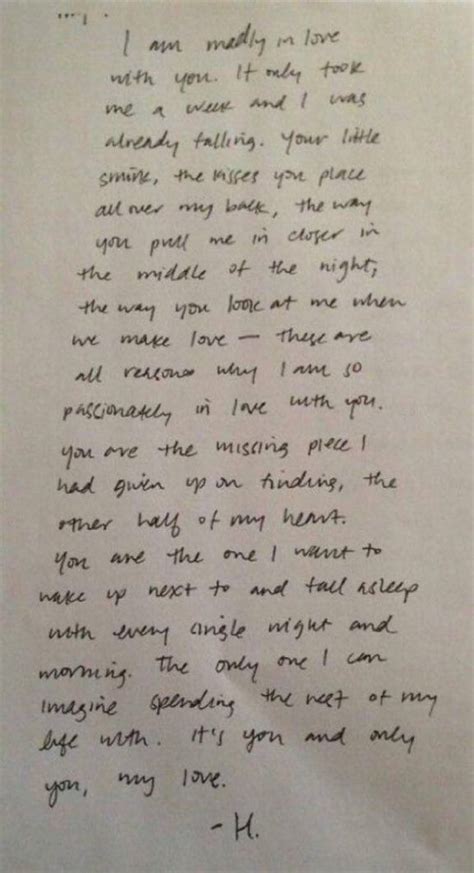 I am madly in love
with you. It only took
me a week and I was
already falling. Your little
smirk, the kisses you place
all over my back, the way
you pull me in closer in
the middle of the night,
the way you look at me when
we make love — these are
all reasons why I am so
passionately in love with you.
You are the missing piece I
had given up on finding, the
other half of my heart.
You are the one I want to
wake up next to and fall asleep
with every single night and
morning. The only one I can
imagine spending the rest of my
life with. It's you and only
you, my love.
-H.